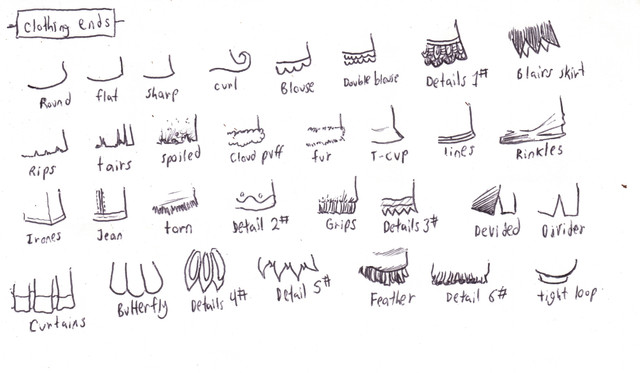 Clothing ends
Round flat Sharp curl Blouse Double blouse Details 1# Blairs skirt
Rips tairs spoiled Cloud puff fur T-cup lines Rinkles
Irones Jean torn Detail 2# Grips Details 3# Devided Divider
Curtains Butterfly Details 4# Detail 5# Feather Detail 6# tight loop